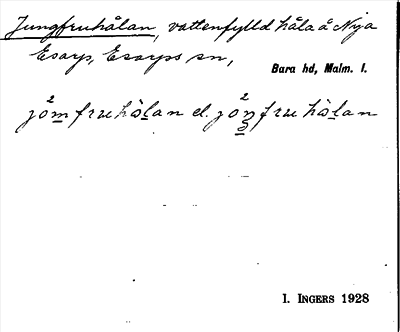 Jungfruhålan, vattenfylld håla å Nya
Esarp, Esarps sn,
Bara hd, Malm. l.
jo²m̲fruhål̲an el. jo²n̲fruhål̲an
I. INGERS 1928